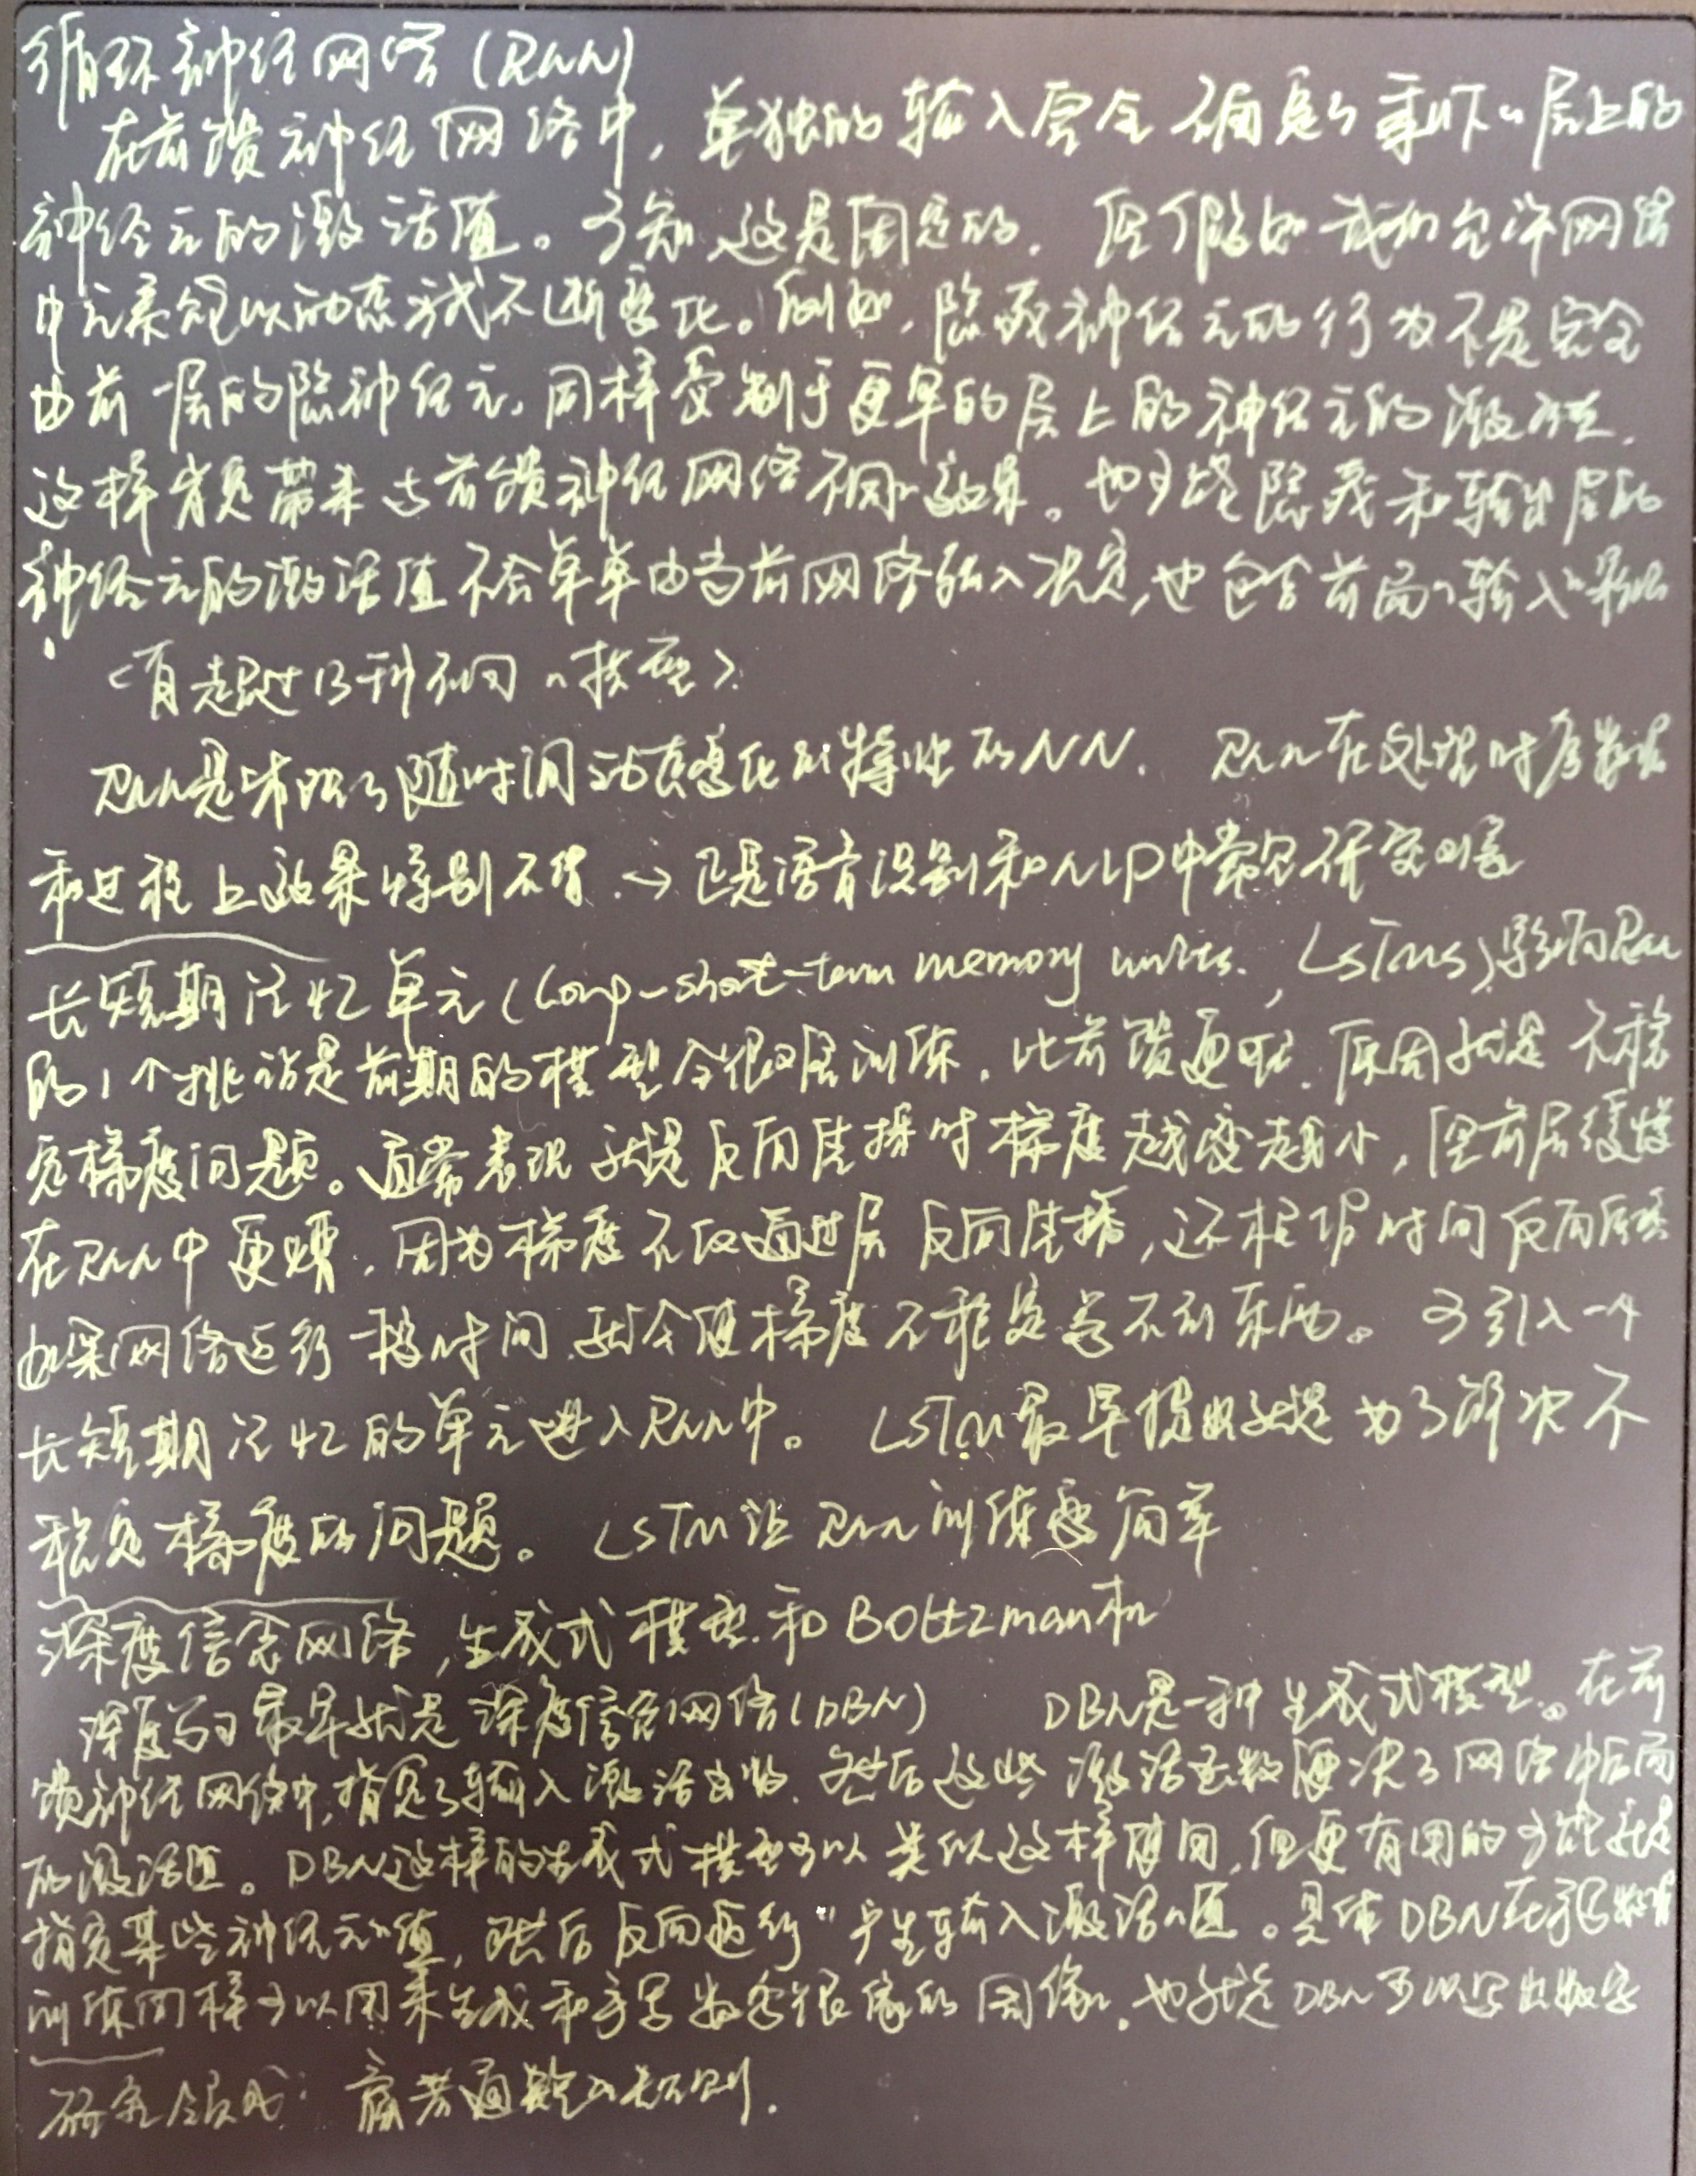 循环神经网络(RNN)
在前馈神经网络中,单独的输入完全确定了剩下的层上的
神经元的激活值。可知这是固定的。但假如我们允许网络
中元素能以动态方式不断变化。例如,隐藏神经元的行为不是完全
由前一层的隐神经元,同样受制于更早的层上的神经元的激活值.
这样肯定带来与前馈神经网络不同的效果。也可能隐藏和输出层的
神经元的激活值不会单单由当前网络输入决定,也包含前面的输入的影响
<有超过13种不同的模型>
RNN是体现了随时间动态变化的特性的NN. RNN在处理时序数据
和过程上效果特别不错.→已是语音识别和NLP中常见研究对象
长短期记忆单元(Long-short-term memory units, LSTMs)影响RNN
的1个挑战是前期的模型会很难训练,比前馈更难.原因就是不稳
定梯度问题。通常表现就是反向传播时梯度越变越小,但前层缓慢
在RNN中更糟,因为梯度不仅通过层反向传播,还根据时间反向传播
如果网络运行一段时间,就会使梯度不稳定学不到东西。可引入一个
长短期记忆的单元进入RNN中。 LSTM最早提出就是为了解决不
稳定梯度的问题。 LSTM让RNN训练变简单
深度信念网络,生成式模型和Boltzman机
深度学习最早就是深度信念网络(DBN) DBN是一种生成式模型。在前
馈神经网络中,指定了输入激活函数,然后这些激活函数便决了网络中后面
的激活值。DBN这样的生成式模型可以类似这样使用,但更有用的可能就是
指定某些神经元的值,然后反向运行"产生输入激活的值。具体DBN在手写数字
训练同样可以用来生成和手写数字很像的图像,也就是DBN可以写出数字
研究领域: